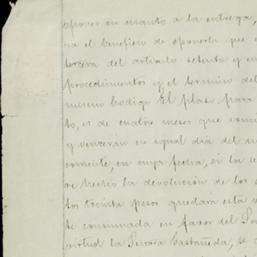 oponer en cuanto a la entrega,
ra el beneficio de oponerla que
tercera del artículo setenta y
procedimientos y el termino del
mismo Codigo El plazo para
to, es de cuatro meses que
y venceran en igual dia del
corriente, en cuya fecha, si la
ce hecho la devolución de los
tos treinta pesos quedara esta
te consumada en favor del
virtud la Señora Castañeda, se